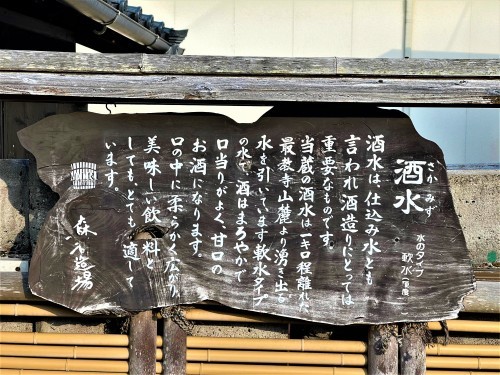 さかみず
酒水
水のタイプ
軟水
酒水は、仕込み水とも
言われ酒造りにとっては
重要なものです。
当蔵の酒水は一キロ程離れた
最教寺山麓より湧き出る
水を引いています軟水タイプ
の水で、酒はまろやかで
口当りがよく、甘口の
お酒になります。
口の中に柔らかく広がり、
美味しい飲料と
してもとても適して
います。
森酒造場